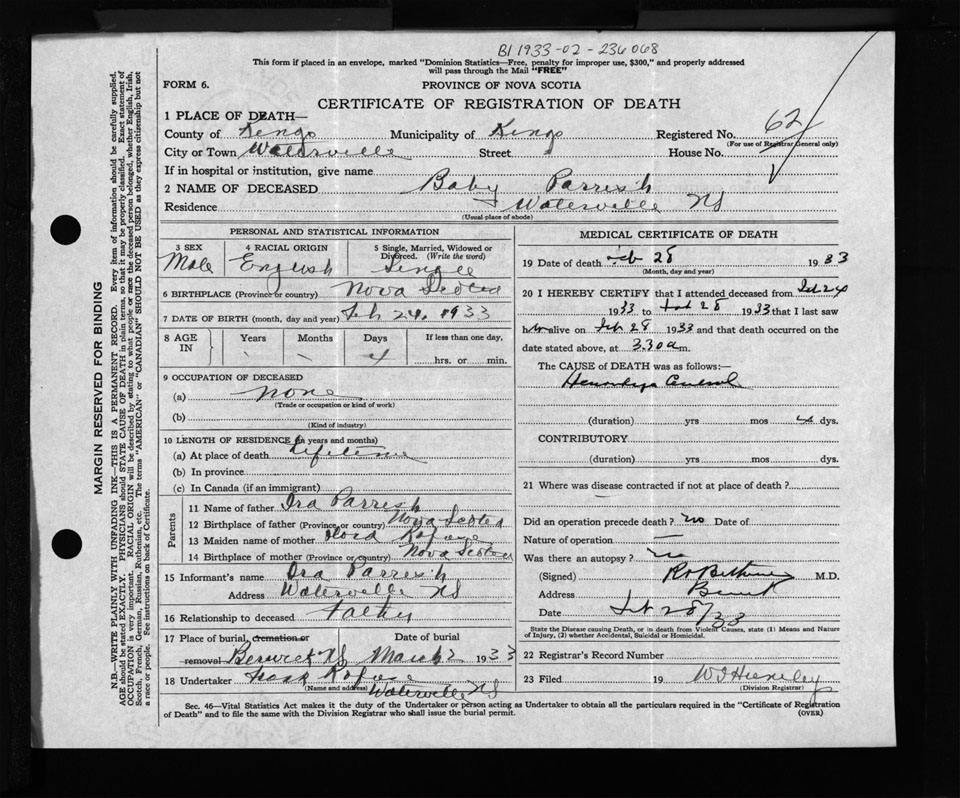 B1 1933-02-236068
This form if placed in an envelope, marked "Dominion Statistics—Free, penalty for improper use, $300," and properly addressed
will pass through the Mail "FREE"
FORM 6.
PROVINCE OF NOVA SCOTIA
CERTIFICATE OF REGISTRATION OF DEATH
1 PLACE OF DEATH—
County of Kings Municipality of Kings Registered No. 62
(For use of Registrar General only)
City or Town Waterville Street House No.
If in hospital or institution, give name
2 NAME OF DECEASED Baby Parrish
Residence Waterville NS
(Usual place of abode)
PERSONAL AND STATISTICAL INFORMATION
3 SEX 4 RACIAL ORIGIN 5 Single, Married, Widowed or Divorced. (Write the word)
Male English Single
6 BIRTHPLACE (Province or country) Nova Scotia
7 DATE OF BIRTH (month, day and year) Feb 24, 1933
8 AGE IN Years Months Days If less than one day,
\ \ 4 hrs. or min.
9 OCCUPATION OF DECEASED
(a) none
(Trade or occupation or kind of work)
(b)
(Kind of industry)
10 LENGTH OF RESIDENCE (in years and months)
(a) At place of death lifetime
(b) In province
(c) In Canada (if an immigrant)
Parents
11 Name of father Ira Parrish
12 Birthplace of father (Province or country) Nova Scotia
13 Maiden name of mother
14 Birthplace of mother (Province or country) Nova Scotia
15 Informant's name Ira Parrish
Address Waterville NS
16 Relationship to deceased Father
17 Place of burial, cremation or removal Berwick NS Date of burial March 2 1933
18 Undertaker
(Name and address) Waterville NS
MEDICAL CERTIFICATE OF DEATH
19 Date of death Feb 28 1933
(Month, day and year)
20 I HEREBY CERTIFY that I attended deceased from Feb 24
1933 to Feb 28 1933 that I last saw
h alive on Feb 28 1933 and that death occurred on the
date stated above, at 3.30 a m.
The CAUSE of DEATH was as follows:—
Hemorrhage Cerebral
(duration) yrs mos 4 dys.
CONTRIBUTORY
(duration) yrs mos dys.
21 Where was disease contracted if not at place of death?
Did an operation precede death? no Date of
Nature of operation —
Was there an autopsy? no
(Signed) M.D.
Address Berwick
Date Feb 28/33
State the Disease causing Death, or in death from Violent Causes, state (1) Means and Nature
of Injury, (2) whether Accidental, Suicidal or Homicidal.
22 Registrar's Record Number
23 Filed 19
(Division Registrar)
Sec. 46—Vital Statistics Act makes it the duty of the Undertaker or person acting as Undertaker to obtain all the particulars required in the "Certificate of Registration
of Death" and to file the same with the Division Registrar who shall issue the burial permit. (OVER)
MARGIN RESERVED FOR BINDING
N.B.—WRITE PLAINLY WITH UNFADING INK—THIS IS A PERMANENT RECORD. Every item of information should be carefully supplied.
AGE should be stated EXACTLY. PHYSICIANS should STATE CAUSE OF DEATH in plain terms, so that it may be properly classified. Exact statement of
OCCUPATION is very important. RACIAL ORIGIN will be described by stating to what people or race the deceased person belonged, whether English, Irish,
Scotch, French, German, Russian, Ruthenian, etc. The terms "AMERICAN" or "CANADIAN" SHOULD NOT BE USED as they express citizenship but not
a race or people. See instructions on back of Certificate.